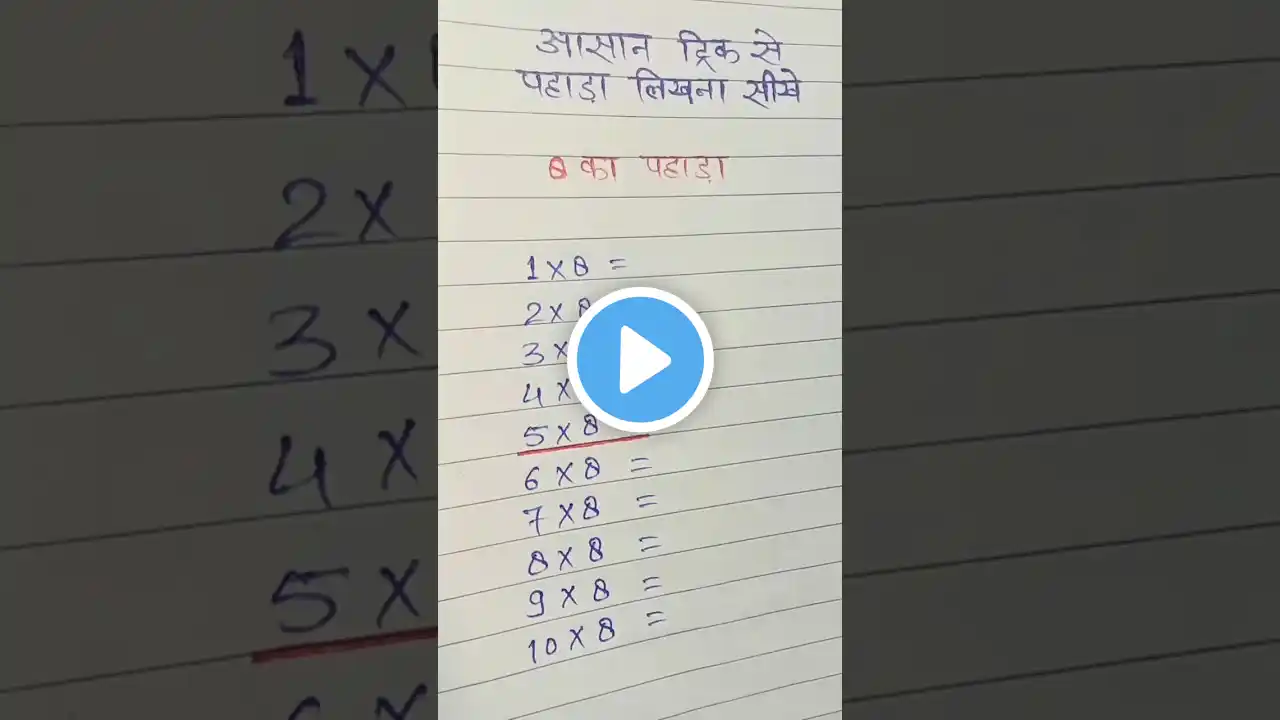 आसान ट्रिक से
पहाड़ा लिखना सीखे
8 का पहाड़ा
1 × 8 =
2 × 8
3 ×
4 ×
5 × 8
6 × 8 =
7 × 8 =
8 × 8 =
9 × 8 =
10 × 8 =
1 ×
2 ×
3 ×
4 ×
5 ×